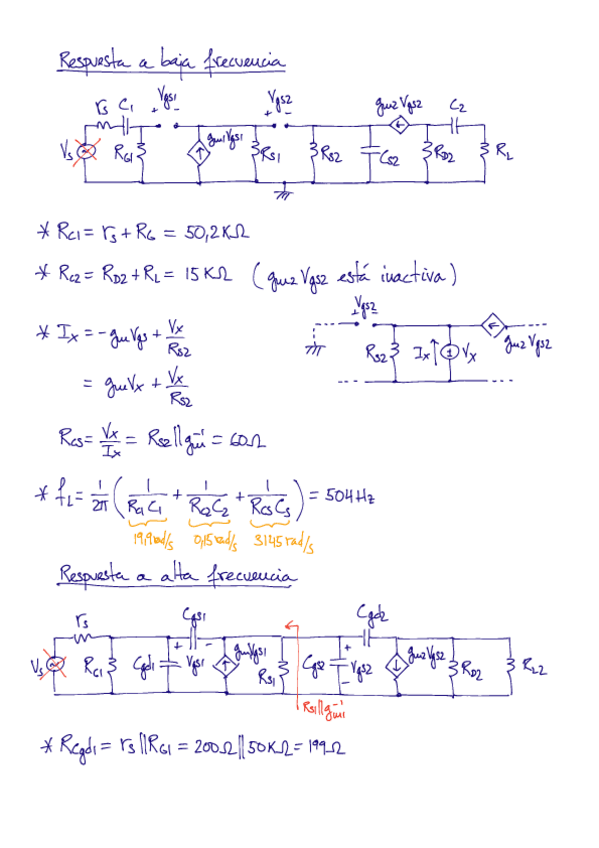 Respuesta a baja frecuencia
Vgs1 Vgs2 gm2Vgs2 C2
rs C1 + - + -
Vs RG1 gm1Vgs1 RS1 RS2 CS2 RD2 RL
* RC1 = rs + RG = 50,2KΩ
* RC2 = RD2 + RL = 15 KΩ (gm2 Vgs2 está inactiva)
* Ix = -gmVgs + Vx/RS2
= gmVx + Vx/RS2
+Vgs2-
RS2 Ix Vx gm2Vgs2
RCS = Vx/Ix = RS2||gm⁻¹ = 60Ω
* fL = 1/2π (1/RC1C1 + 1/RC2C2 + 1/RCSCS) = 504 Hz
19,9 rad/s 0,15 rad/s 3145 rad/s
Respuesta a alta frecuencia
rs Cgs1 Cgd2
Vs Cgd1 + Vgs1 - gm1Vgs1 RS1 Cgs2 + Vgs2 - gm2Vgs2 RD2 RL2
RS1||gm1⁻¹
* RCgd1 = rs||RG1 = 200Ω||50KΩ = 199Ω